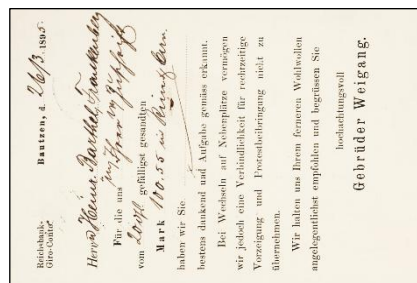 Reichsbank-
Giro-Conto
Bautzen, d. 26/3. 1895.
Herrn Heinr. Barthel, Frankenberg
Für die uns
vom 20ten gefälligst gesandten
Mark 100.55 in
haben wir Sie
bestens dankend und Aufgabe gemäss erkannt.
Bei Wechseln auf Nebenplätze vermögen
wir jedoch eine Verbindlichkeit für rechtzeitige
Vorzeigung und Protestbeibringung nicht zu
übernehmen.
Wir halten uns Ihrem ferneren Wohlwollen
angelegentlichst empfohlen und begrüssen Sie
hochachtungsvoll
Gebrüder Weigang.